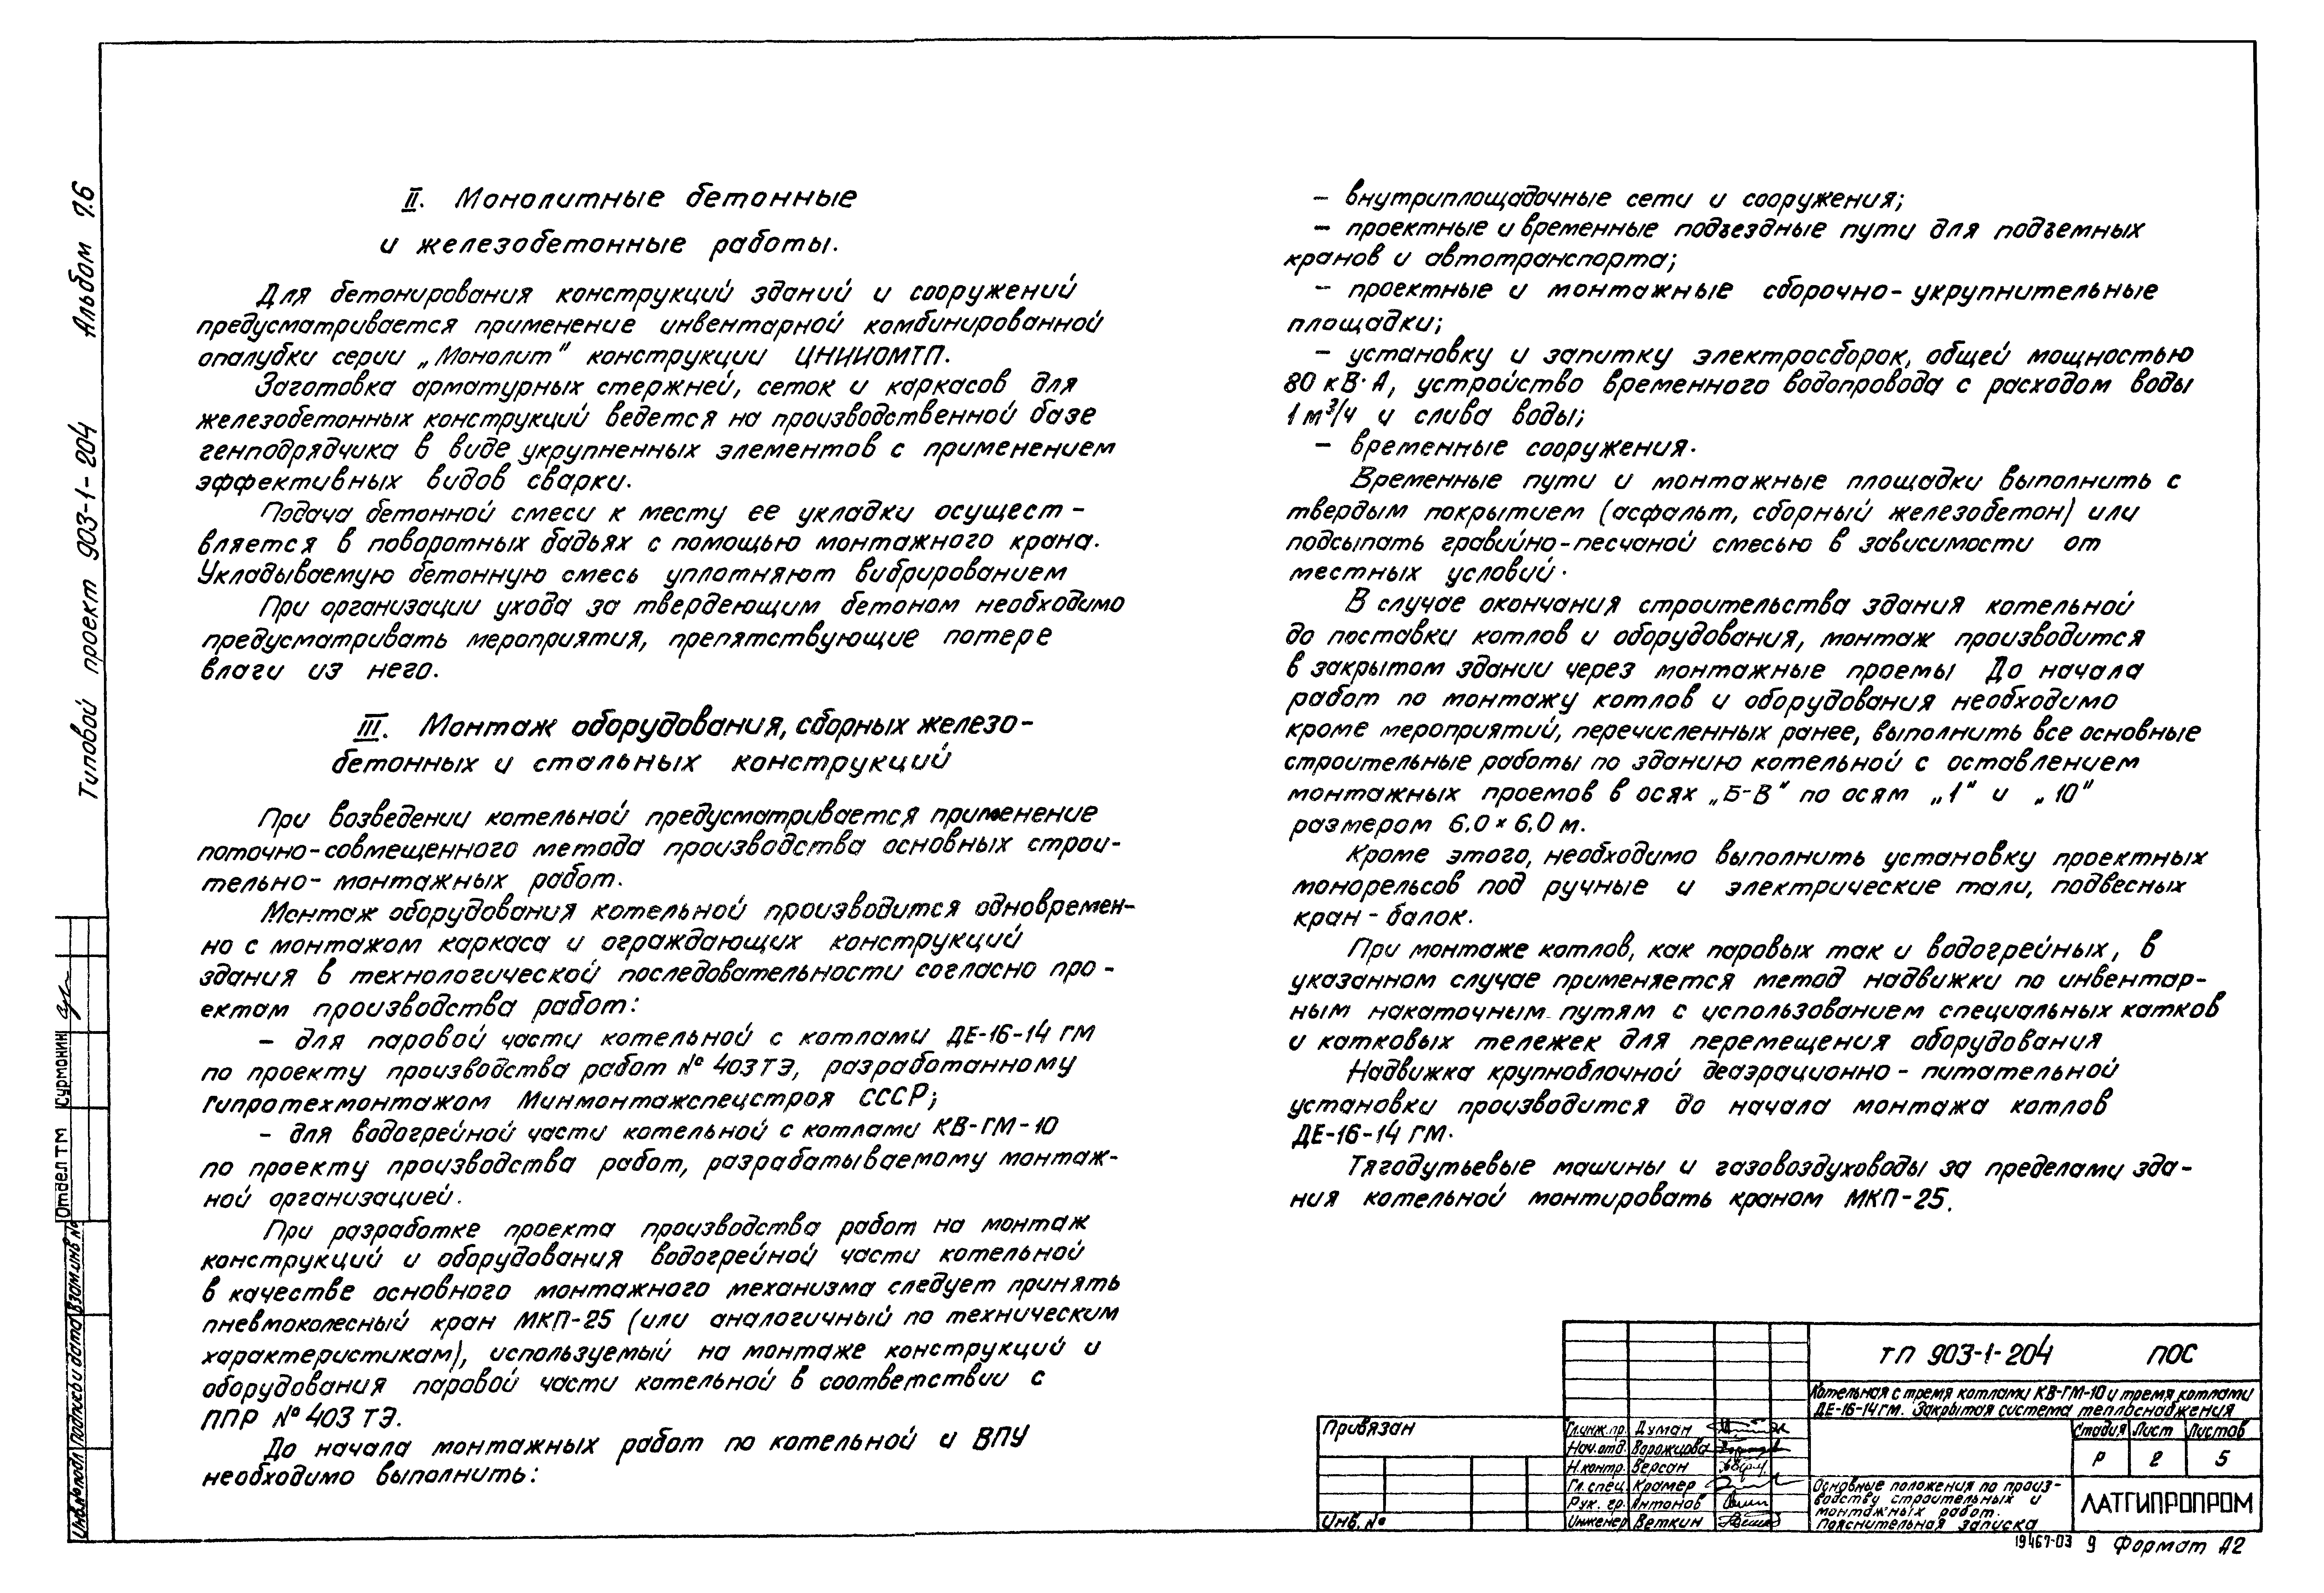 II. Монолитные бетонные
и железобетонные работы.
Для бетонирования конструкций зданий и сооружений
предусматривается применение инвентарной комбинированной
опалубки серии „Монолит" конструкции ЦНИИОМТП.
Заготовка арматурных стержней, сеток и каркасов для
железобетонных конструкций ведется на производственной базе
генподрядчика в виде укрупненных элементов с применением
эффективных видов сварки.
Подача бетонной смеси к месту ее укладки осущест-
вляется в поворотных бадьях с помощью монтажного крана.
Укладываемую бетонную смесь уплотняют вибрированием
При организации ухода за твердеющим бетоном необходимо
предусматривать мероприятия, препятствующие потере
влаги из него.
III. Монтаж оборудования, сборных железо-
бетонных и стальных конструкций
При возведении котельной предусматривается применение
поточно-совмещенного метода производства основных строи-
тельно-монтажных работ.
Монтаж оборудования котельной производится одновремен-
но с монтажом каркаса и ограждающих конструкций
здания в технологической последовательности согласно про-
ектам производства работ:
– для паровой части котельной с котлами ДЕ-16-14 ГМ
по проекту производства работ № 403 ТЭ, разработанному
Гипротехмонтажом Минмонтажспецстроя СССР;
– для водогрейной части котельной с котлами КВ-ГМ-10
по проекту производства работ, разрабатываемому монтаж-
ной организацией.
При разработке проекта производства работ на монтаж
конструкций и оборудования водогрейной части котельной
в качестве основного монтажного механизма следует принять
пневмоколесный кран МКП-25 (или аналогичный по техническим
характеристикам), используемый на монтаже конструкций и
оборудования паровой части котельной в соответствии с
ППР № 403 ТЭ.
До начала монтажных работ по котельной и ВПУ
необходимо выполнить:
– внутриплощадочные сети и сооружения;
– проектные и временные подъездные пути для подъемных
кранов и автотранспорта;
– проектные и монтажные сборочно-укрупнительные
площадки;
– установку и запитку электросборок, общей мощностью
80 кВ·А, устройство временного водопровода с расходом воды
1 м³/ч и слива воды;
– временные сооружения.
Временные пути и монтажные площадки выполнить с
твердым покрытием (асфальт, сборный железобетон) или
подсыпать гравийно-песчаной смесью в зависимости от
местных условий.
В случае окончания строительства здания котельной
до поставки котлов и оборудования, монтаж производится
в закрытом здании через монтажные проемы До начала
работ по монтажу котлов и оборудования необходимо
кроме мероприятий, перечисленных ранее, выполнить все основные
строительные работы по зданию котельной с оставлением
монтажных проемов в осях „Б-В" по осям „1" и „10"
размером 6,0 × 6,0 м.
Кроме этого, необходимо выполнить установку проектных
монорельсов под ручные и электрические тали, подвесных
кран-балок.
При монтаже котлов, как паровых так и водогрейных, в
указанном случае применяется метод надвижки по инвентар-
ным накаточным путям с использованием специальных катков
и катковых тележек для перемещения оборудования
Надвижка крупноблочной деаэрационно-питательной
установки производится до начала монтажа котлов
ДЕ-16-14 ГМ.
Тягодутьевые машины и газовоздуховоды за пределами зда-
ния котельной монтировать краном МКП-25.
Типовой проект 903-1-204 Альбом 7.6
Отдел ТМ Сурмонин
Инв.№ подл. Подпись и дата Взам.инв.№
Привязан
Инв. №
Гл.инж.пр. Думан
Нач.отд. Ворожцова
Н.контр. Версан
Гл.спец. Крамер
Рук. гр. Антонов
Инженер Веткин
ТП 903-1-204 ПОС
Котельная с тремя котлами КВ-ГМ-10 и тремя котлами
ДЕ-16-14ГМ. Закрытая система теплоснабжения
Стадия Лист Листов
Р 2 5
Основные положения по произ-
водству строительных и
монтажных работ.
Пояснительная записка
ЛАТГИПРОПРОМ
19467-03 9 Формат А2